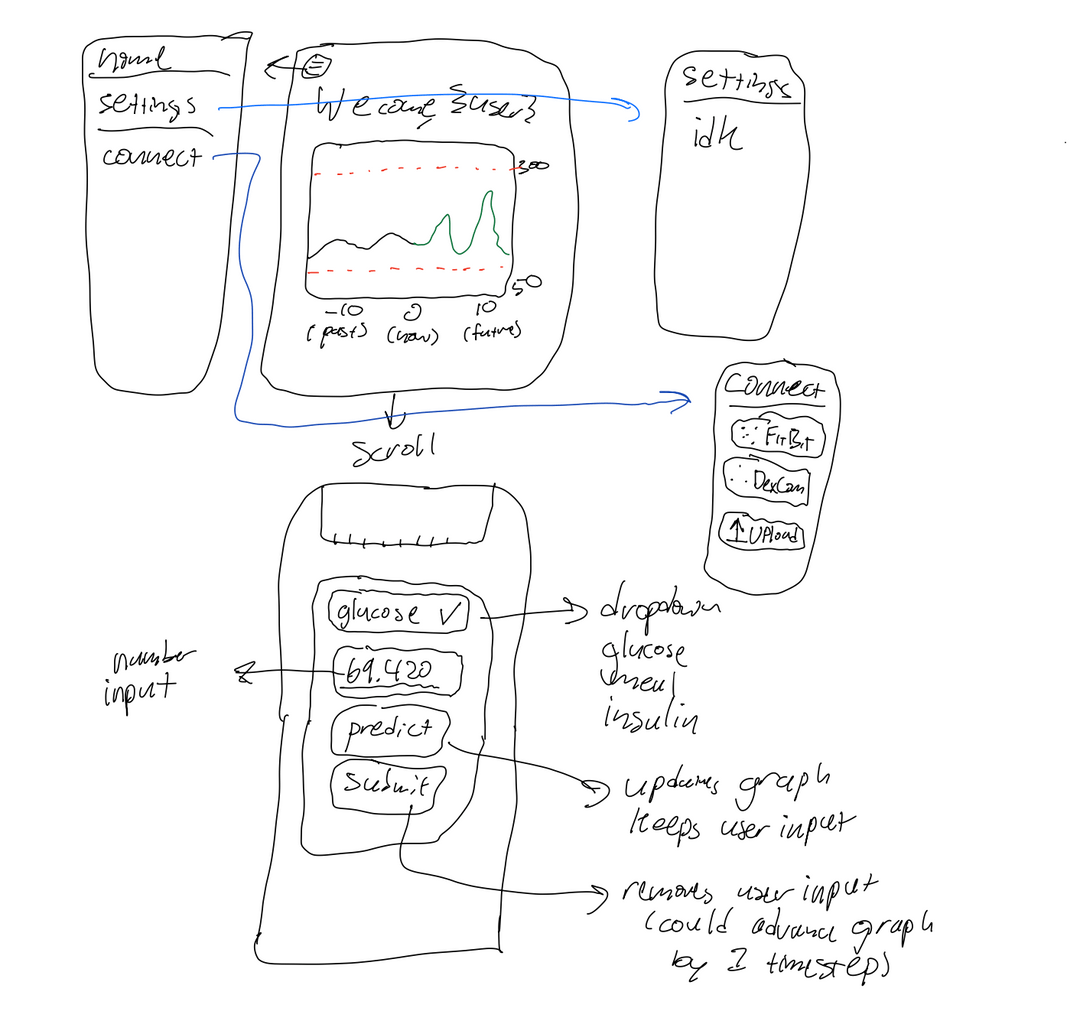 home
settings
connect
Wecome, {user}
300
50
-10
0
10
(past)
(now)
(future)
settings
idk
scroll
connect
FitBit
DexCom
Upload
glucose
69.420
predict
submit
number
input
dropdown
glucose
meal
insulin
updates graph
keeps user input
removes user input
(could advance graph
by 1 timestep)